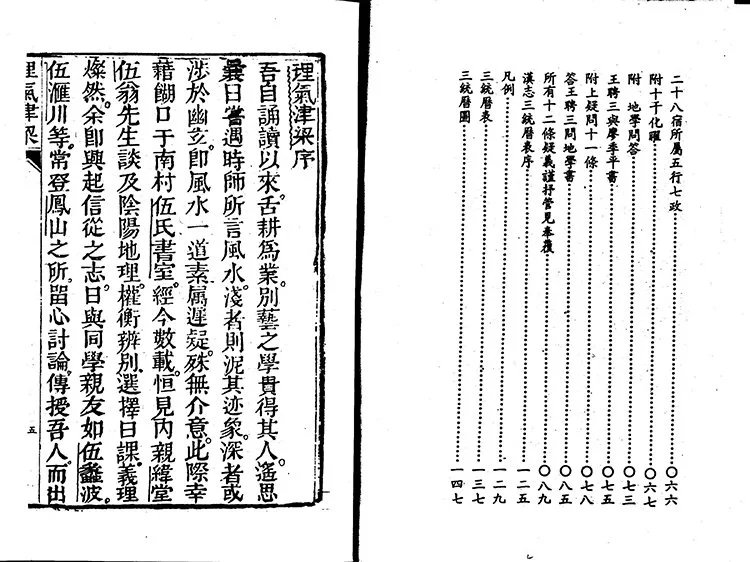 二十八宿所屬五行七政……〇六六
附十干化曜……〇六七
附　地學問答……〇七三
王聘三與廖季平書……〇七五
附上疑問十一條……〇七八
答王聘三問地學書……〇八五
所有十二條疑義謹抒管見奉復……〇八九
漢志三統曆表序……一二五
凡例……一二九
三統曆表……一三七
三統曆圖……一四七
理氣津梁序
吾自誦讀以來。舌耕為業。別藝之學貴得其人。遙思
曩日嘗遇時師所言風水。淺者則泥其迹象。深者或
涉於幽玄。即風水一道素属遲疑。殊無介意。此際幸
藉餬口于南村伍氏書室。經今數載。恒見內親緯堂
伍翁先生談及陰陽地理。權衡辨别。選擇日課。義理
燦然。余即興起信從之志。日與同學親友如伍蠡波。
伍滙川等。常登鳳山之所。畱心討論。傳授吾人。而出
理氣津梁
五